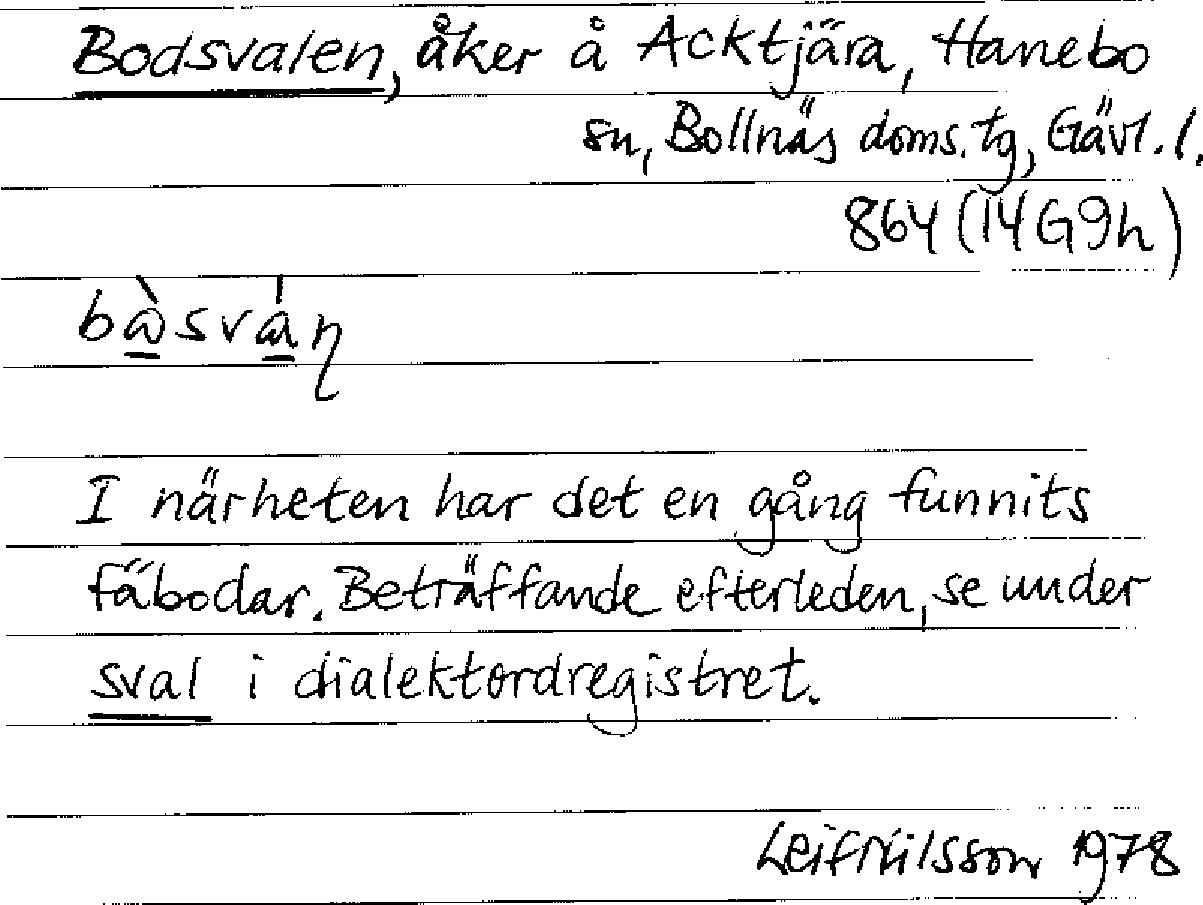 Bodsvalen, åker å Acktjära, Hanebo
sn, Bollnäs doms. tg, Gävl. l.
864 (14G9h)
I närheten har det en gång funnits
fäbodar. Beträffande efterleden, se under
sval i dialektordregistret.
Leif Nilsson 1978